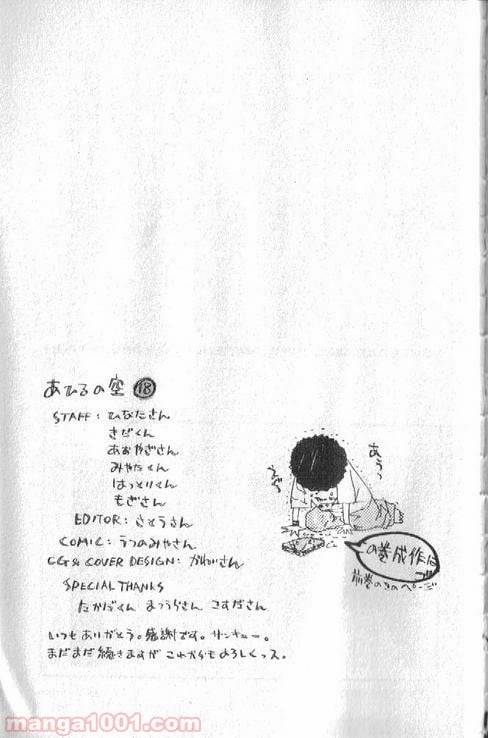 あひるの空 18
STAFF: ひなたさん
きだくん
あおやぎさん
みやたくん
はっとりくん
もぎさん
EDITOR: さとうさん
COMIC: うつのみやさん
CG & COVER DESIGN: かわいさん
SPECIAL THANKS
たかはくん まつうらさん こすださん
いつもありがとう。感謝です。サンキュー。
まだまだ続きますが これからもよろしくっス。
あうっ
の巻成作は
manga1001.com